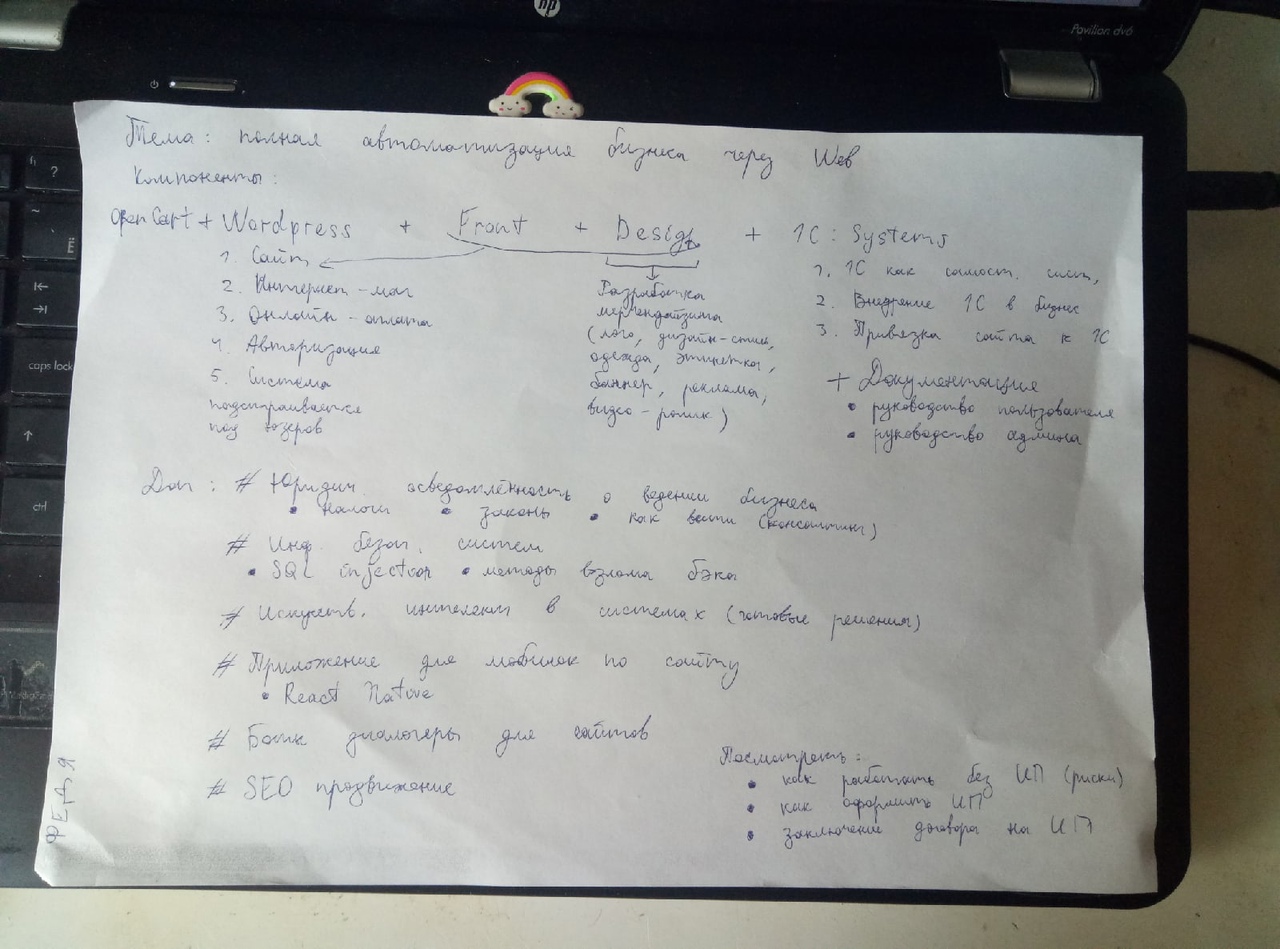 hp
Pavilion dv6
Тема: полная автоматизация бизнеса через Web
Компоненты:
OpenCart + Wordpress + Front + Design + 1C: Systems
1. Сайт
2. Интернет-маг
3. Онлайн-оплата
4. Авторизация
5. Система
подстраивается
под юзеров
Разработка
мерчендайзига
(лого, дизайн-стиль,
одежда, этикетка,
баннер, реклама,
видео-ролик)
1. 1С как самост. сист,
2. Внедрение 1С в бизнес
3. Привязка сайта к 1С
+ Документация
• руководство пользователя
• руководство админа
Доп: # Юридич. осведомлённость о ведении бизнеса
• налоги • законы • как вести (консалтинг)
# Инф. безоп. систем
• SQL injection • методы взлома бэка
# Искуств. интелект в системах (готовые решения)
# Приложение для мобилок по сайту
• React Native
# Боты диалогеры для сайтов
# SEO продвижение
Посмотреть:
• как работать без ИП (риски)
• как оформить ИП
• заключение договора на ИП
ФЕДЯ
?
caps lock
ctrl